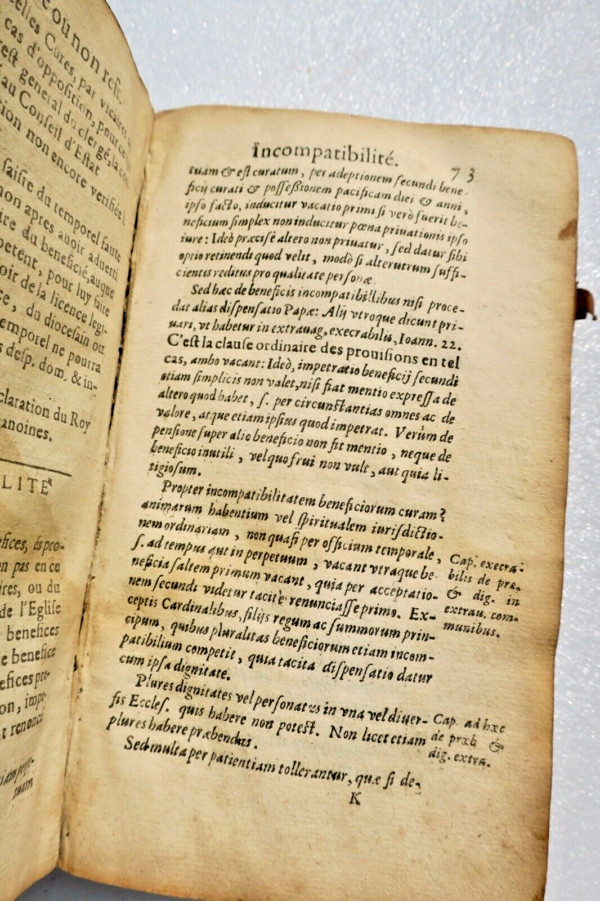 e où non resi-
elles Cures, par vicaires
cas d'opposition, pour ce
est general du clergé, la
au Conseil d'Estat
ion non encore verifiée.
saisie du temporel faute
non apres auoir aduerti
re du beneficié, auque
petent, pour luy faire
oir de la licence legi-
e, du diocesain ou
temporel ne pourra
s desp. dom. & in-
claration du Roy
anoines.
LITE
fices, és pro-
on pas en ce
ires, ou du
de l'Eglise
benefices
e benefice
efices pro-
on, impe-
t renoncé
Incompatibilité. 73
tuam & est curatum, per adeptionem secundi bene-
ficij curati & possessionem pacificam diei & anni,
ipso facto, inducitur vacatio primi si verò fuerit be-
neficium simplex non inducitur pœna priuationis ipso
iure: Ideò præcisè altero non priuatur, sed datur sibi
optio retinendi quod velit, modò si alterutrum suffi-
cientis reditus pro qualitate personæ.
Sed hæc de beneficis incompatibilibus nisi proce-
dat alias dispensatio Papæ: Alij vtroque dicunt pri-
uari, vt habetur in extrauag. execrabilis, Ioann. 22.
C'est la clause ordinaire des prouisions en tel
cas, ambo vacant: Ideò, impetratio beneficij secundi
etiam simplicis non valet, nisi fiat mentio expressa de
altero quod habet, s. per circunstantias omnes ac de
valore, atque etiam ipsius quod impetrat. Verùm de
pensione super alio beneficio non fit mentio, neque de
beneficio inutili, vel quo frui non vult, aut quia li-
tigiosum.
Propter incompatibilitatem beneficiorum curam?
animarum habentium vel spiritualem iurisdictio-
nem ordinariam, non quasi per officium temporale,
s. ad tempus aut in perpetuum, vacant vtraque be-
neficia saltem primum vacant, quia per acceptatio-
nem secundi videtur tacitè renunciasse primo. Ex-
ceptis Cardinalibus, filijs regum ac summorum prin-
cipum, quibus pluralitas beneficiorum etiam incom-
patibilium competit, quia tacita dispensatio datur
cum ipsa dignitate.
Cap. execra-
bilis de præ.
& dig. in
extrau. com-
munibus.
Plures dignitates vel personatus in vna vel diuer-
sis Eccles. quis habere non potest. Non licet etiam
plures habere præbendas.
Cap. ad hæc
de præb &
dig. extra.
Sed multa per patientiam tollerantur, quæ si de-
K